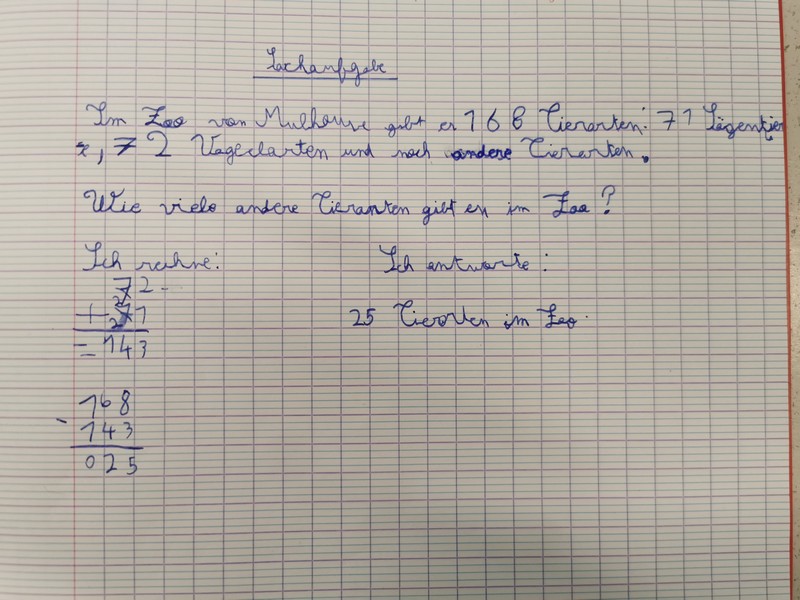 Sachaufgabe
Im Zoo von Mulhouse gibt es 168 Tierarten: 71 Säugentier
e, 72 Vogelarten und noch andere Tierarten.
Wie viele andere Tierarten gibt es im Zoo?
Ich rechne: Ich antworte:
72
+ 71 25 Tierarten im Zoo.
= 143
168
- 143
025